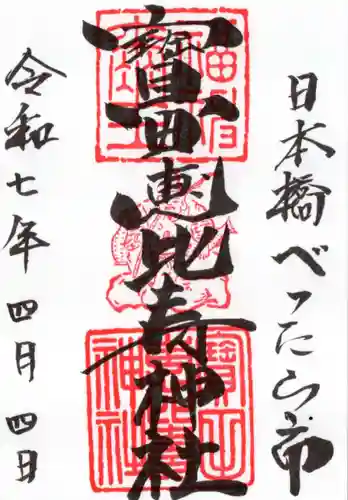 日本橋べったら市
寳田恵比寿神社
令和七年 四月 四日